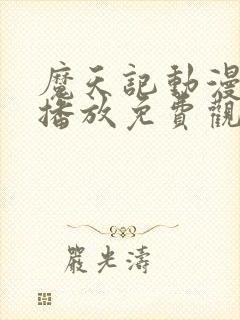 魔天記動漫
播放免費觀
嚴光濤